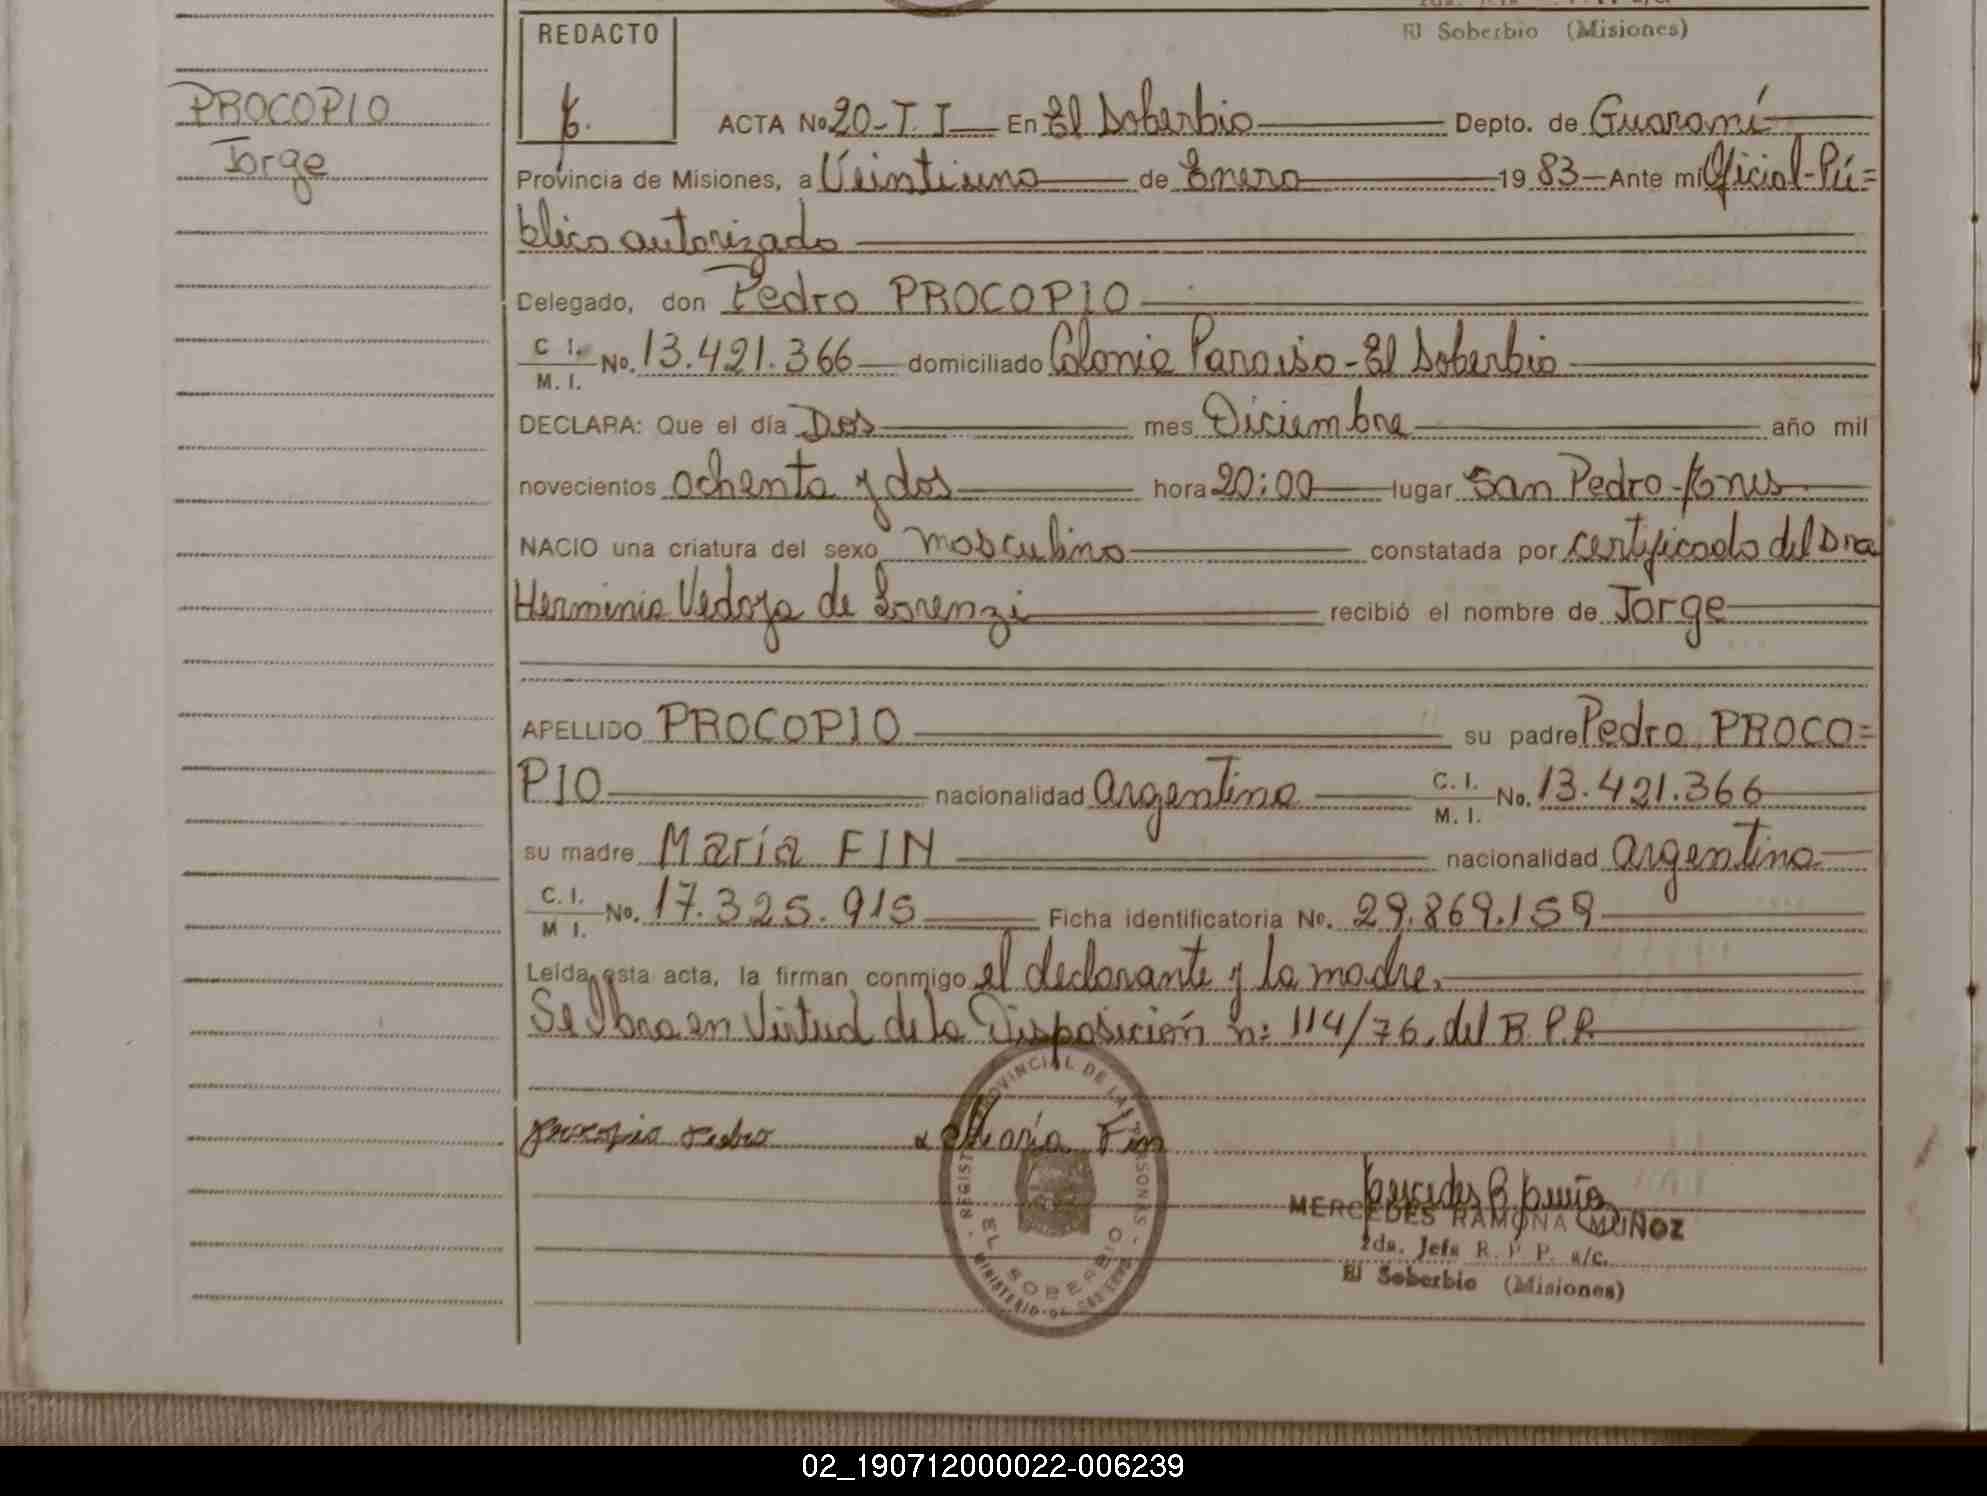 El Soberbio (Misiones)
REDACTO
PROCOPIO
Jorge
ACTA No 20-T.I En El Soberbio Depto. de Guaraní
Provincia de Misiones, a Veintiuno de Enero 19 83 Ante mi Oficial-Pú=
blico autorizado
Delegado, don Pedro PROCOPIO
C I. M. I. No. 13.421.366 domiciliado Colonia Paraiso-El Soberbio
DECLARA: Que el día Dos mes Diciembre año mil
novecientos ochenta y dos hora 20:00 lugar San Pedro-Mnes
NACIO una criatura del sexo masculino constatada por certificado del Dra
Herminia Vedoya de Lorenzi recibió el nombre de Jorge
APELLIDO PROCOPIO su padre Pedro PROCO=
PIO nacionalidad argentina C. I. M. I. No. 13.421.366
su madre María FIN nacionalidad argentina
C. I. M I. No. 17.325.915 Ficha identificatoria No. 29.869.159
Leída esta acta, la firman conmigo el declarante y la madre.
Se labra en Virtud de la Disposición n: 114/76. del R.P.P.
procopio Pedro María Fin
REGISTRO PROVINCIAL DE LAS PERSONAS - MINISTERIO DE GOBIERNO - EL SOBERBIO
MERCEDES RAMONA MUÑOZ
2da. Jefa R. P. P. a/c.
El Soberbio (Misiones)
02_190712000022-006239